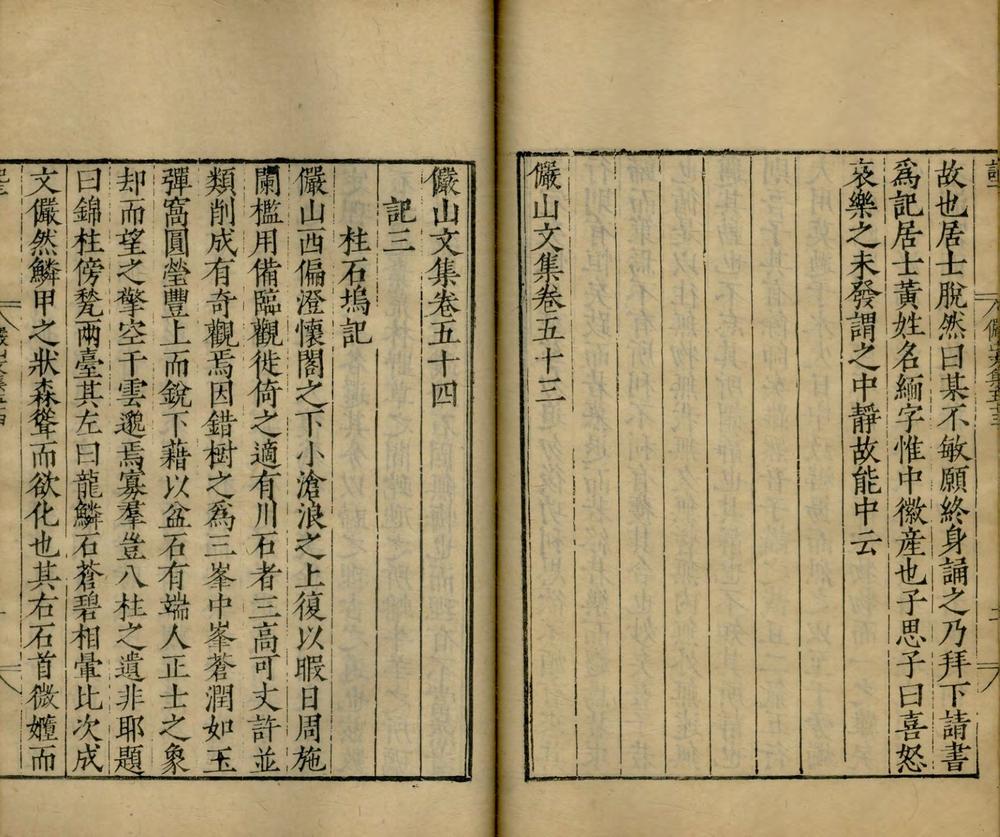 故也居士脫然曰某不敏願終身誦之乃拜下請書
爲記居士黃姓名緬字惟中徽産也子思子曰喜怒
哀樂之未發謂之中靜故能中云
儼山文集卷五十三
儼山文集卷五十四
記三
柱石塢記
儼山西偏澄懷閣之下小滄浪之上復以暇日周施
闌檻用備臨觀徙倚之適有川石者三高可丈許並
類削成有奇觀焉因錯樹之爲三峯中峯蒼潤如玉
彈窩圓瑩豐上而銳下藉以盆石有端人正士之象
却而望之擎空干雲邈焉寡羣豈八柱之遺非耶題
曰錦柱傍甃兩臺其左曰龍鱗石蒼碧相暈比次成
文儼然鱗甲之狀森聳而欲化也其右石首微嬗而